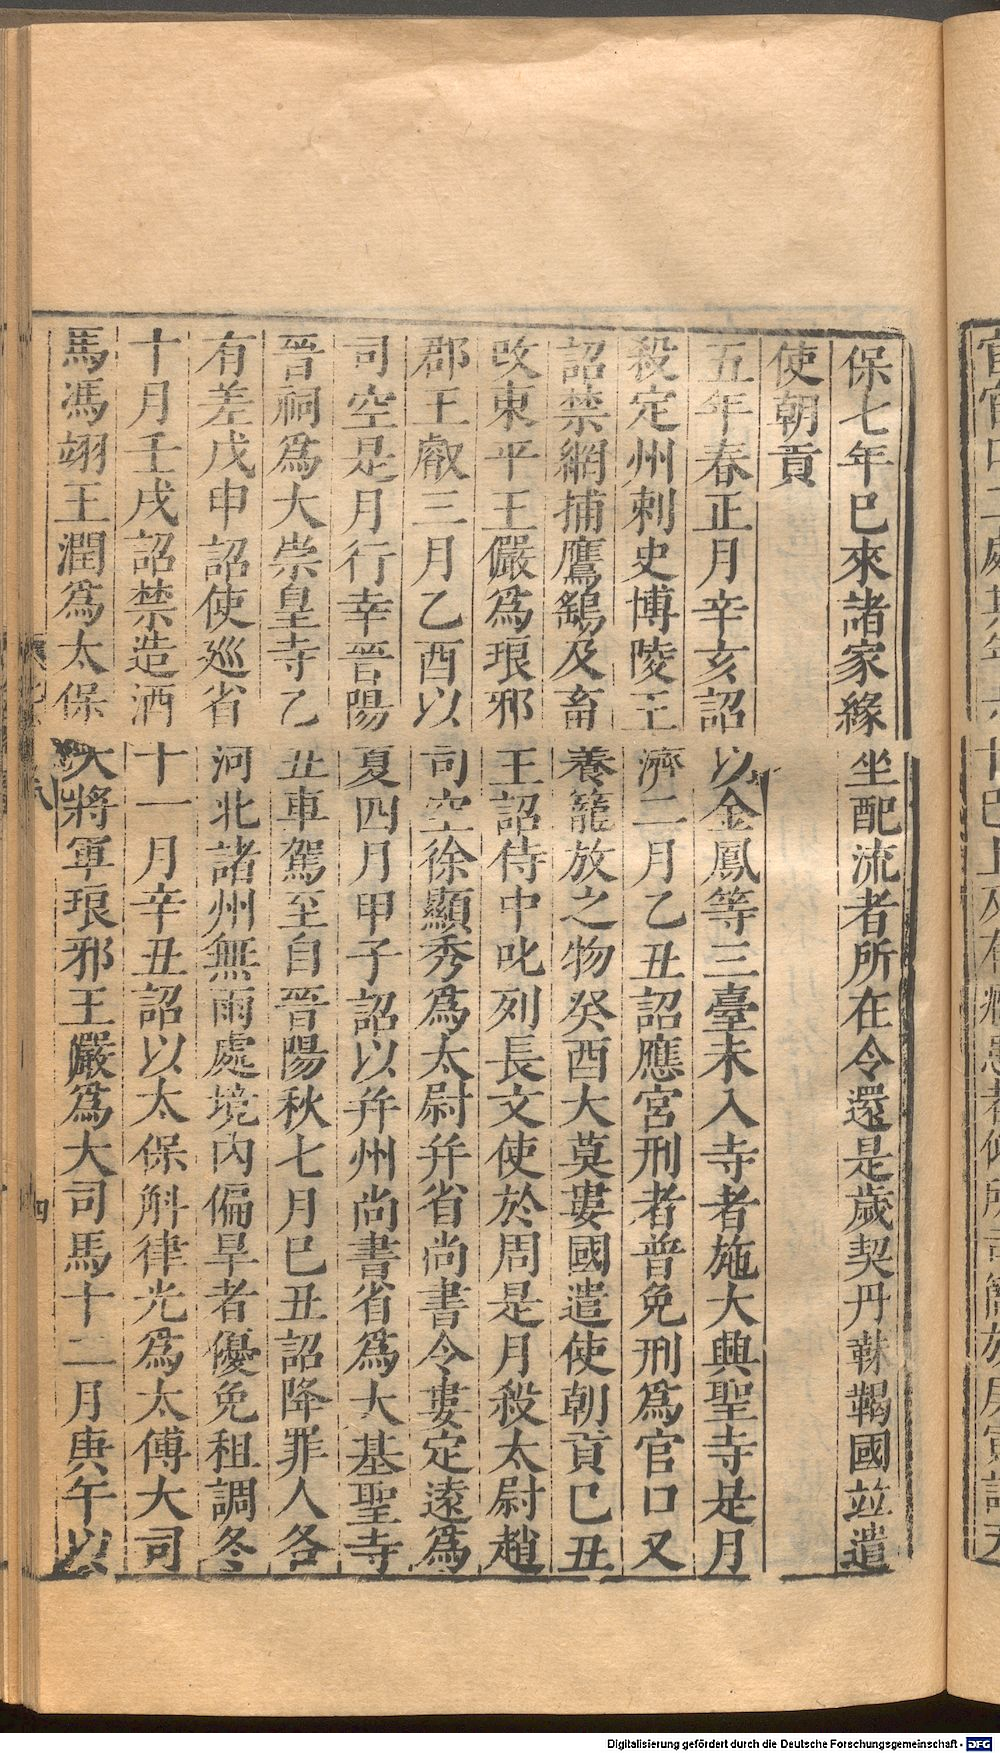 保七年已來諸家緣坐配流者所在令還是歲契丹靺鞨國並遣
使朝貢
五年春正月辛亥詔以金鳳等三臺未入寺者施大興聖寺是月
殺定州刺史博陵王濟二月乙丑詔應宮刑者普免刑爲官口又
詔禁網捕鷹鷂及畜養籠放之物癸酉大莫婁國遣使朝貢己丑
改東平王儼爲琅邪王詔侍中叱列長文使於周是月殺太尉趙
郡王叡三月乙酉以司空徐顯秀爲太尉并省尚書令婁定遠爲
司空是月行幸晉陽夏四月甲子詔以并州尚書省爲大基聖寺
晉祠爲大崇皇寺乙丑車駕至自晉陽秋七月巳丑詔降罪人各
有差戊申詔使廵省河北諸州無雨處境內偏旱者優免租調冬
十月壬戌詔禁造酒十一月辛丑詔以太保斛律光爲太傅大司
馬馮翊王潤爲太保大將軍琅邪王儼爲大司馬十二月庚午以
四
Digitalisierung gefördert durch die Deutsche Forschungsgemeinschaft - DFG